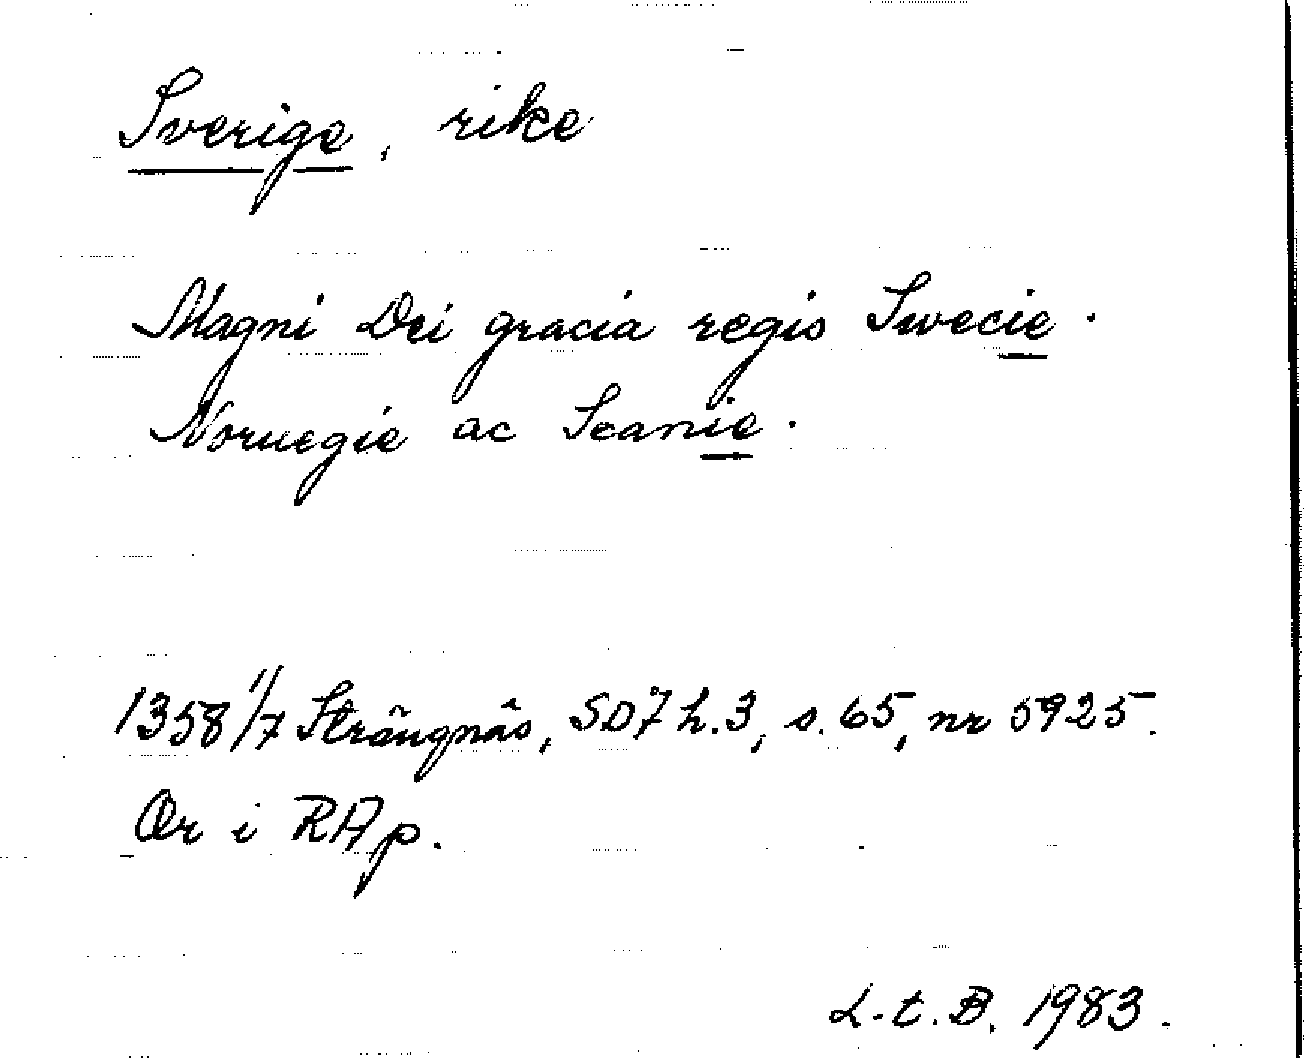 Sverige, rike
Magni Dei gracia regis Swecie.
Noruegie ac Scanie.
1358 1/7 Strängnäs, SD7 h.3, s. 65, nr 5925.
Or i RAp.
L.t.B. 1983.